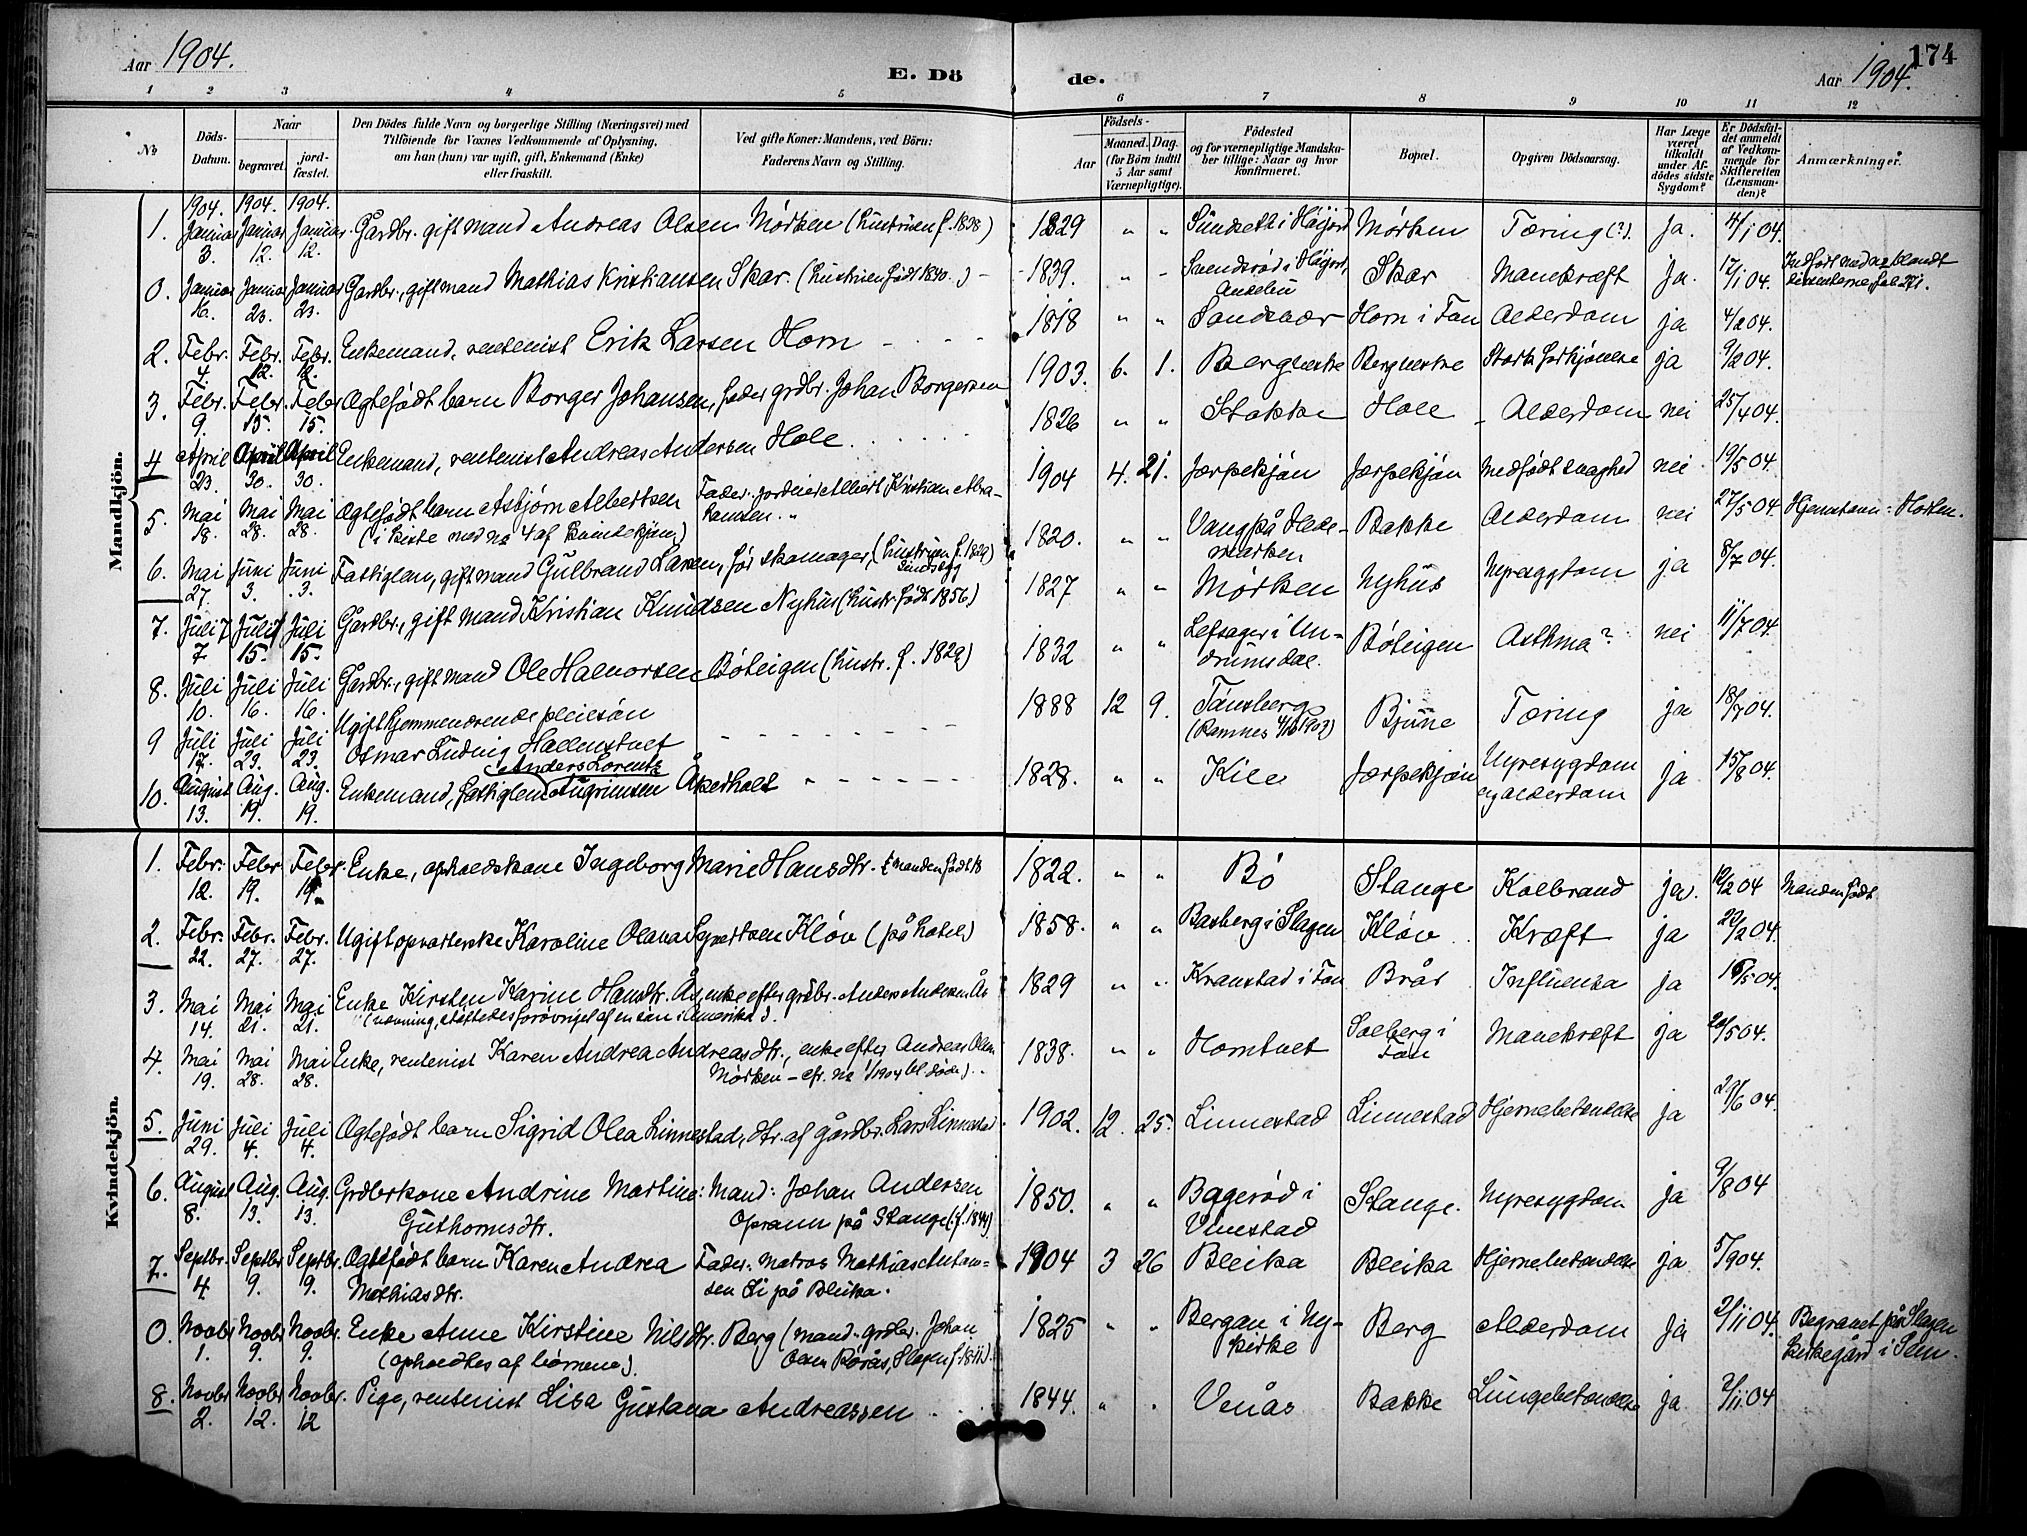 Aar 1904.
E. Dö
de.
Aar 1904.
174
1 2 3 4 5 6 7 8 9 10 11 12
No
Döds-Datum.
Naar
begravet.
jord-fæstet.
Den Dödes fulde Navn og borgerlige Stilling (Næringsvei) med
Tilföiende for Voxnes Vedkommende af Oplysning,
om han (hun) var ugift, gift, Enkemand (Enke)
eller fraskilt.
Ved gifte Koner: Mandens, ved Börn:
Faderens Navn og Stilling.
Födsels-
Aar
Maaned. Dag.
(for Börn indtil
5 Aar samt
Værnepligtige).
Födested
og for værnepligtige Mandska-
ber tillige: Naar og hvor
konfirmeret.
Bopæl.
Opgiven Dödsaarsag.
Har Læge
været
tilkaldt
under Af-
dödes sidste
Sygdom?
Er Dödsfal-
det anmeldt
af Vedkom-
mende for
Skifteretten
(Lensman-
den)?
Anmærkninger.
Mandkjön.
1904. 1904. 1904.
1. Januar 3. Januar 12. Januar 12. Gårdbr. gift mand Andreas Olsen Mörken (hustruen f. 1838) 1829 " " Sundseth i Högjord Mörken Tæring (?). Ja. 4/1 04.
0. Januar 16. Januar 23. Januar 23. Gårdbr., gift mand Mathias Kristiansen Skar. (hustruen født 1840.) 1839. " " Svendsrød i Högjord, Andebu Skar Mavekræft ja. 17/1 04. Indført nedenblandt
2. Febr. 4. Febr. 12. Febr. 12. Enkemand, rentenist Erik Larsen Horn 1818 " " Sandehær Horn i Fon Alderdom ja 4/2 04.
3. Febr. 9. Febr. 15. Febr. 15. Ægtefødt barn Borger Johansen, fader grdbr. Johan Borgersen 1903. 6. 1. Berg vestre Berg vestre Stærk forkjölelse ja 9/2 04.
4 April 23. April 30. April 30. Enkemand, rentenist Andreas Andersen Hole 1826 " " Stokke Hole Alderdom nei 25/4 04.
5. Mai 18. Mai 28. Mai 28. Ægtefødt barn Asbjörn Albertsen Fader: jordeier Albert Kristian Abra- 1904 4. 21. Jerpekjön Jerpekjön medfødt svaghed nei 19/5 04.
hamsen.
6. Mai 27. Juni 3. Juni 3. Fattiglem, gift mand Gulbrand Larsen, för skomager, (hustruen f. 1829) 1820. " " Vang på Hede-
marken Bakke Alderdom nei 27/5 04. Hjemstavn: Horten.
7. Juli 7 Juli 15. Juli 15. Gårdbr., gift mand Kristian Knudsen Nyhus (hustr. født 1856) 1827 " " Mörken Nyhus Nyresygdom ja 8/7 04.
8. Juli 10. Juli 16. Juli 16. Gårdbr., gift mand Ole Halvorsen Böleigen (hustr. f. 1829) 1832 " " Lefsager i Un-
drumsdal. Böleigen Asthma? nei 11/7 04.
9 Juli 17. Juli 23. Juli 23. Ugift hjemmeværende pleiesön
Osmar Ludvig Hallenstvet 1888 12 9. Tönsberg
(Ramnes Bjune Tæring ja 18/7 04.
10. August 13. Aug. 19. Aug. 19. Enkemand, fattiglem Anders Lorentz Augrimsen Åkerholt 1828. " " Kile Jerpekjön Nyresygdom
og alderdom ja 15/8 04.
Kvindekjön.
1. Febr. 12. Febr. 19. Febr. 19. Enke, opholdskone Ingeborg Marie Hansdtr. (manden født 1822. " " Bö Stange Kolbrand ja. 12/2 04 Manden født
2. Febr. 22. Febr. 27. Febr. 27. Ugift opvarterske Karoline Olava Syvertsen Klöv (på hotel) 1858. " " Basberg i Slagen Klöv Kræft ja 22/2 04.
3. Mai 14. Mai 21. Mai 21. Enke Kirsten Karine Hansdtr. Ås, enke efter grdbr. Anders Andersen Ås 1829 " " Kranstad i Fon Brår Influensa ja 15/5 04.
forövrigt af en sön i Amerika).
4. Mai 19. Mai 28. Mai 28. Enke, rentenist Karen Andrea Andreasdtr., enke efter Andreas Olsen
Mörken - cfr. no 1/1904 bl. döde). 1838. " " Homtvet Solberg i
Fon Mavekræft ja 20/5 04.
5. Juni 29. Juli 4. Juli 4. Ægtefødt barn Sigrid Olea Linnestad, dtr. af gårdbr. Lars Linnestad 1902. 12. 25. Linnestad Linnestad Hjernebetændelse ja 29/6 04.
6. August 8. Aug. 13. Aug. 13. Grdbrkone Andrine Martine
Guthormsdtr. Mand: Johan Andersen
Opraun på Stange (f. 1844) 1850. " " Bagerød i
Vivestad Stange. Nyresygdom ja 9/8 04
7. Septbr. 4. Septbr. 9. Septbr. 9. Ægtefødt barn Karen Andrea
Mathiasdtr. Fader: matros Mathias Anton-
sen Li på Bleika. 1904 3 26 Bleika Bleika Hjernebetændelse ja 5/9 04.
0. Novbr. 1. Novbr. 9. Novbr. 9. Enke Anne Kirstine Nilsdtr. Berg (mand: grdbr. Johan
(opholdtes af börnene). Olsen Rörås, Slagen f. 1825 " " Bergan i Ny-
kirke Berg Alderdom ja 2/11 04. Begravet på Slagen
kirkegård i Sem.
8. Novbr. 2. Novbr. 12. Novbr. 12 Pige, rentenist Lisa Gustava Andreassen 1844. " " Venås Bakke Lungebetændelse ja 2/11 04